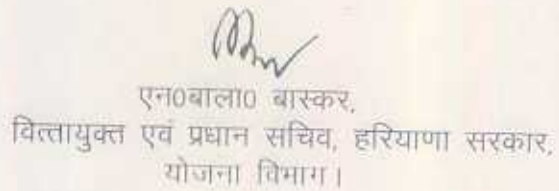 एन0बाला0 बास्कर,
वित्तायुक्त एवं प्रधान सचिव, हरियाणा सरकार,
योजना विभाग।